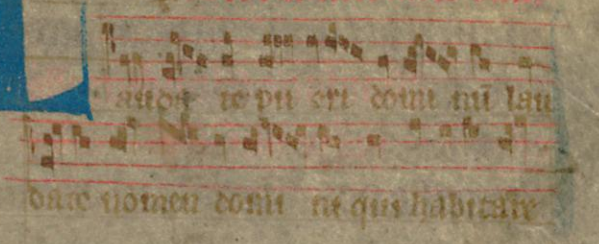 Lauda te pu eri domi nū lau
date nomen domi ni qui habitare